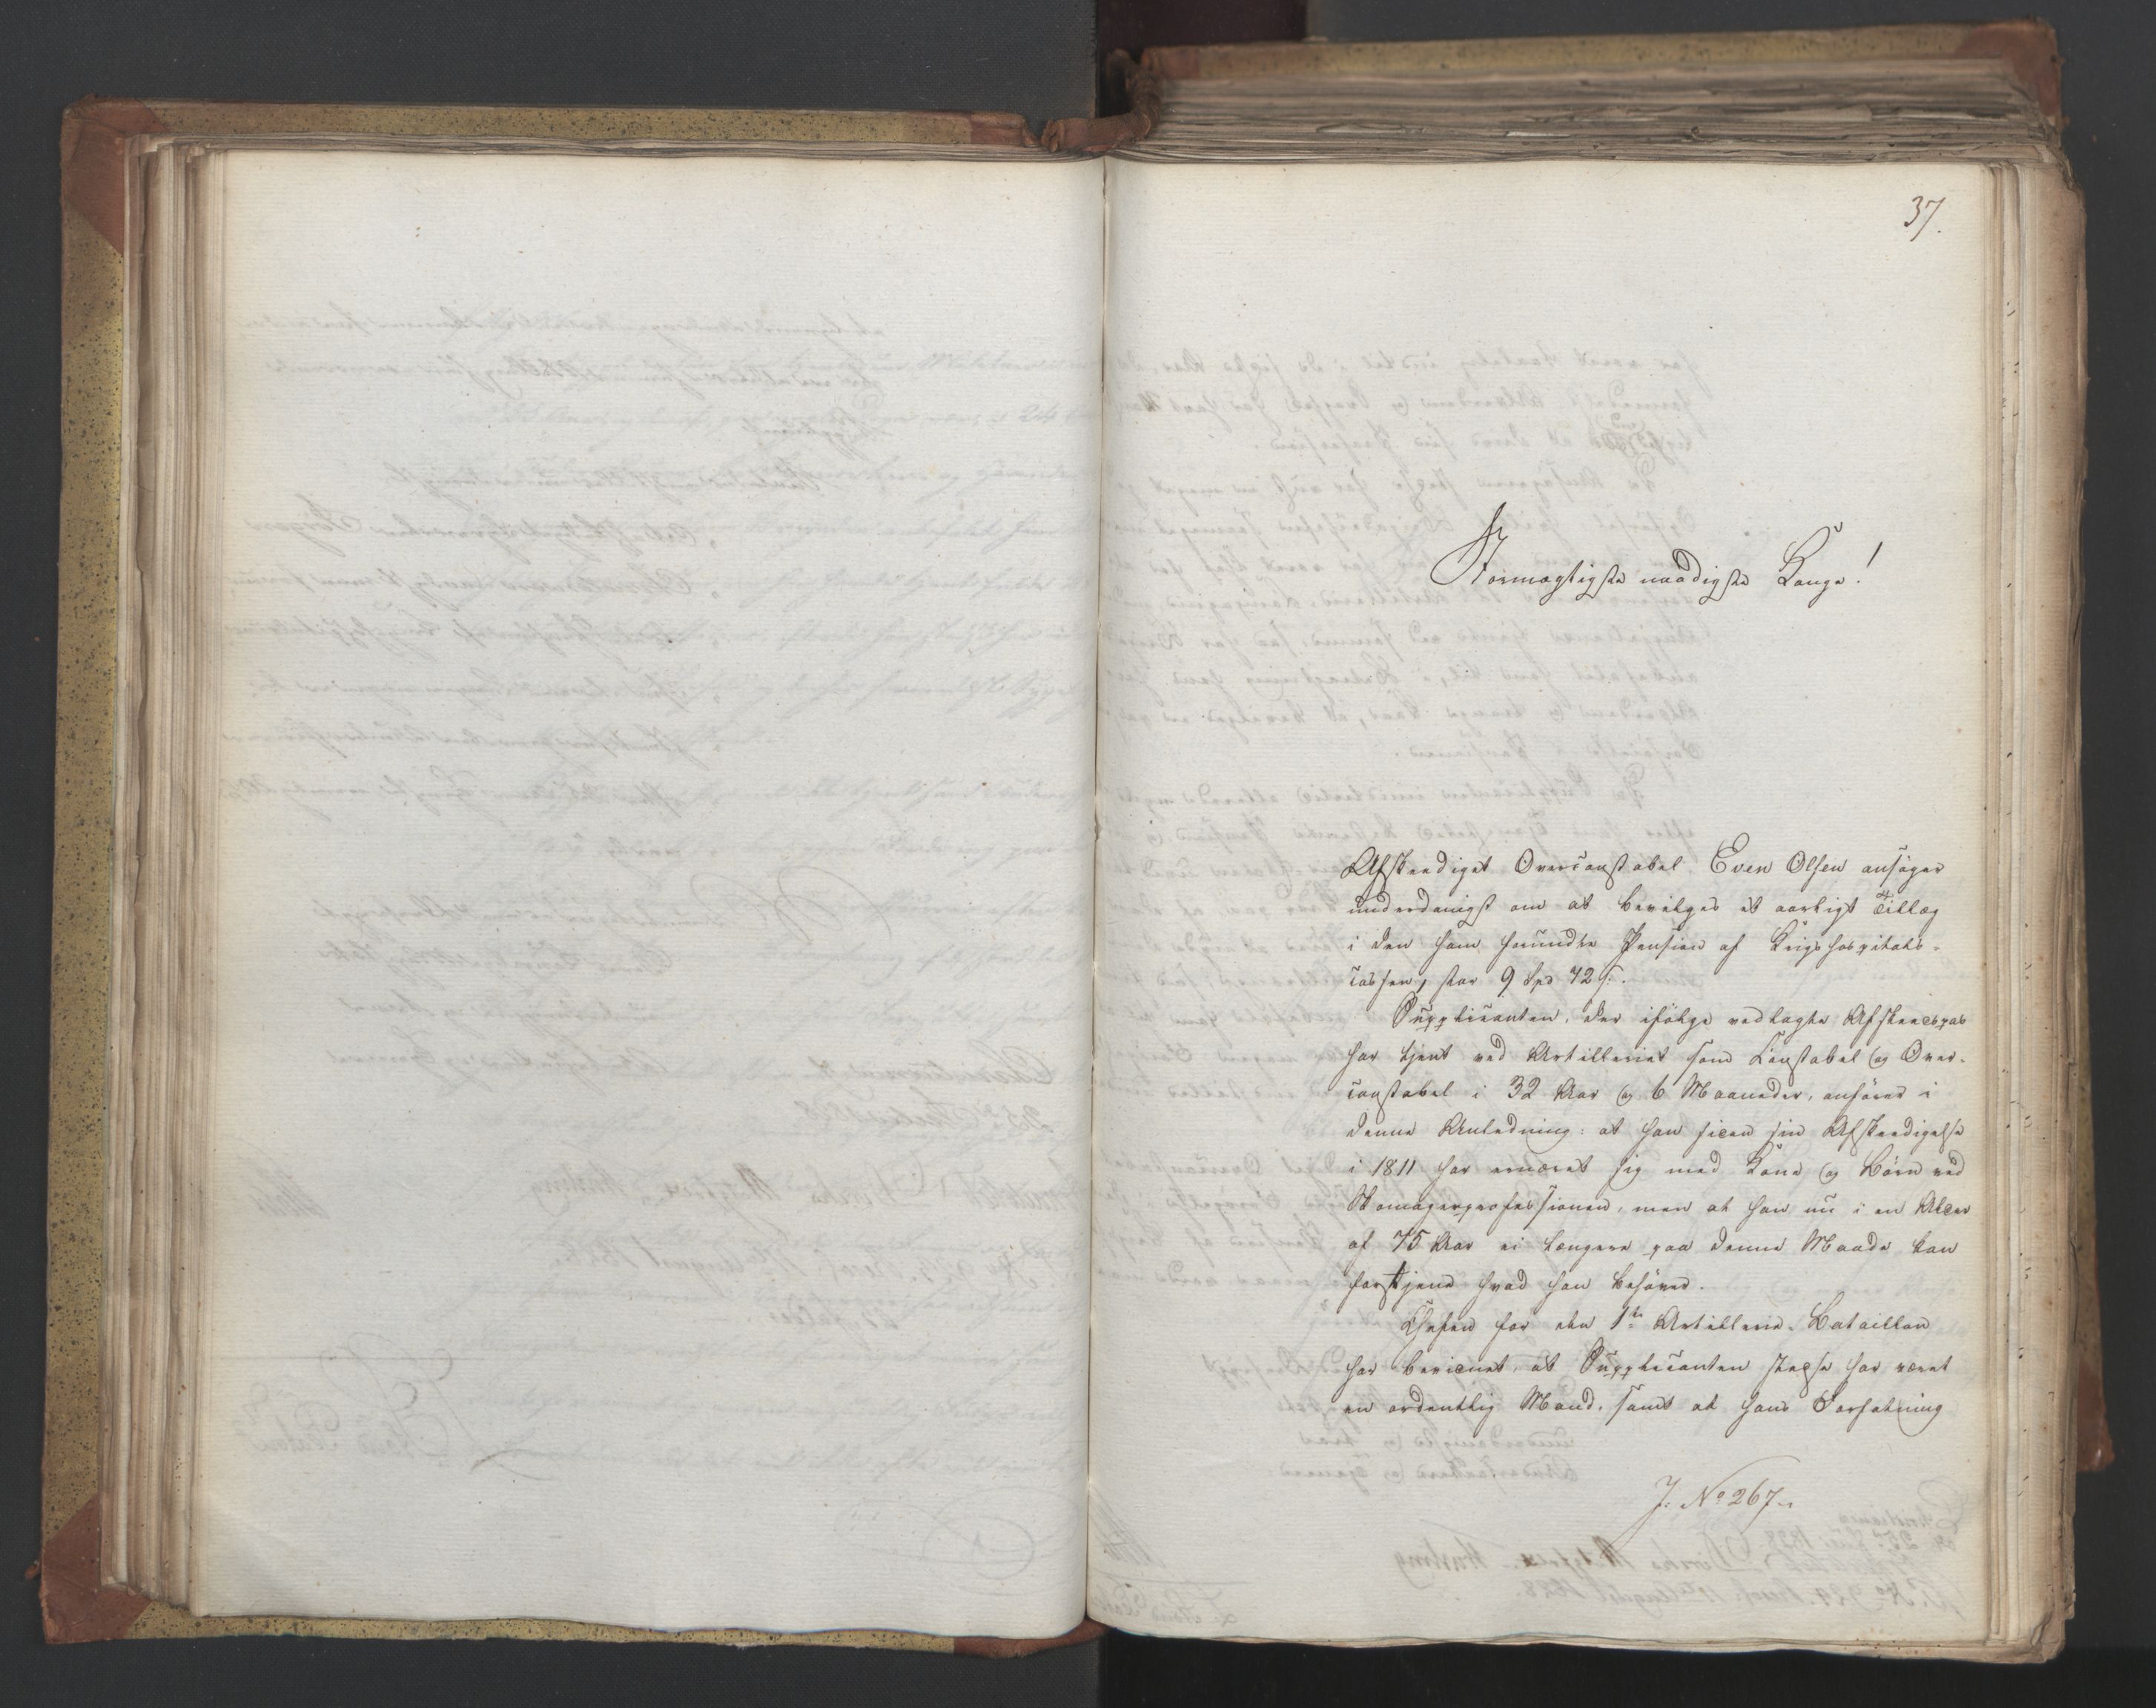 37.
Stormægtigste naadigste Konge!
Afskediget Overconstabel Even Olsen ansøger
underdanigst om at bevilges et aarligt Tillæg
i den ham forundte Pension af Krigshospitals-
cassen, stor 9 Spd 72 s.
Supplicanten, der ifølge vedlagte Afskeedspas
har tjent ved Artilleriet som Constabel og Over-
constabel i 32 Aar og 6 Maaneder, anfører i
denne Anledning: at han siden sin Afskedigelse
i 1811 har ernæret sig med Kone og Børn ved
Skomagerprofessionen, men at han nu i en Alder
af 75 Aar ei længere paa denne Maade kan
fortjene hvad han behøver.
Chefen for den 1ste Artillerie-Bataillon
har bevidnet, at Supplicanten stedse har været
en ordentlig Mand, samt at hans Forfatning
J: No 267.